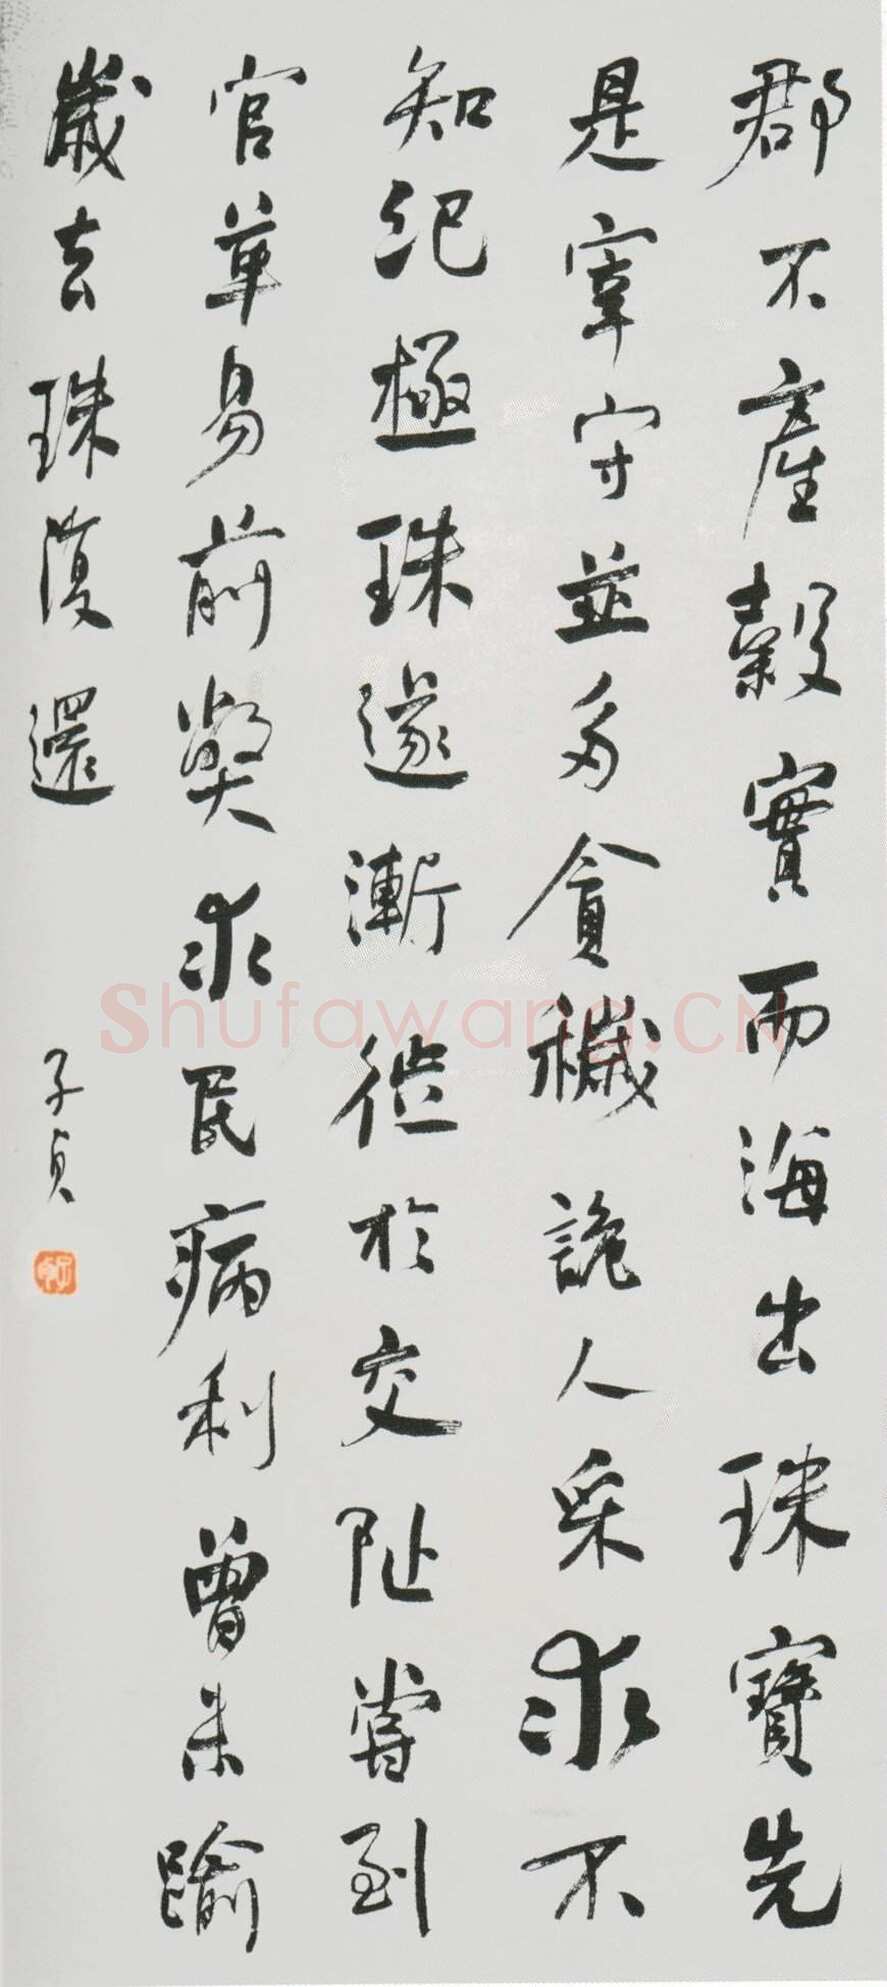 郡不產穀實而海出珠寶先
是宰守並多貪穢詭人采求不
知紀極珠遂漸徙於交阯嘗到
官革易前獘求民病利曾未踰
歲去珠復還
子貞
Shufawang.CN